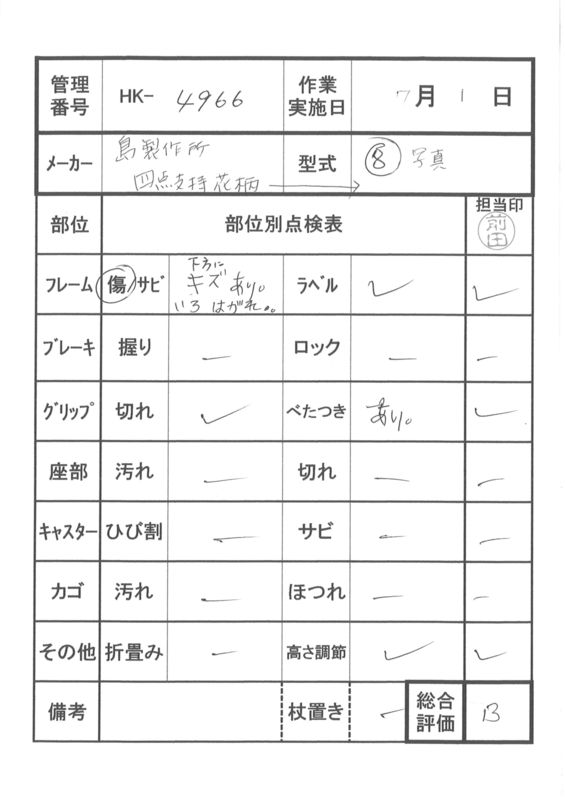 管理番号 HK- 4966 作業実施日 7月 1 日
メーカー 島製作所 四点支持花柄 → 型式 ⑧ 写真
部位 部位別点検表 担当印 前田
フレーム 傷/サビ 下方にキズあり。いろはがれ。。 ラベル ✓ ✓
ブレーキ 握り — ロック — —
グリップ 切れ ✓ べたつき あり。 ✓
座部 汚れ — 切れ — —
キャスター ひび割 — サビ — —
カゴ 汚れ — ほつれ — —
その他 折畳み — 高さ調節 ✓ ✓
備考 杖置き — 総合評価 B